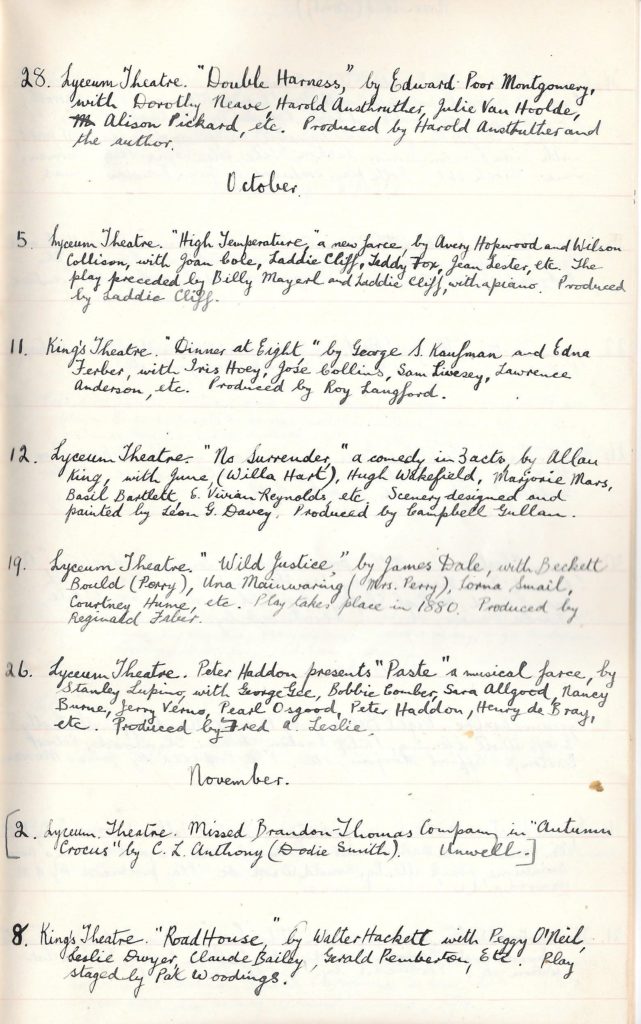 28. Lyceum Theatre. "Double Harness," by Edward Poor Montgomery,
with Dorothy Neave, Harold Anstruther, Julie Van Hoolde,
Alison Pickard, etc. Produced by Harold Anstruther and
the author.
October.
5. Lyceum Theatre. "High Temperature," a new farce, by Avery Hopwood and Wilson
Collison, with Joan Cole, Laddie Cliff, Teddy Fox, Jean Lester, etc. The
play preceded by Billy Mayerl and Laddie Cliff, with a piano. Produced
by Laddie Cliff.
11. King's Theatre. "Dinner at Eight," by George S. Kaufman and Edna
Ferber, with Iris Hoey, José Collins, Sam Livesey, Lawrence
Anderson, etc. Produced by Roy Langford.
12. Lyceum Theatre. "No Surrender," a comedy in 3 acts, by Allan
King, with June, (Willa Hart), Hugh Wakefield, Marjorie Mars,
Basil Bartlett, E. Vivian Reynolds, etc. Scenery designed and
painted by Léon G. Davey. Produced by Campbell Gullan.
19. Lyceum Theatre. "Wild Justice," by James Dale, with Beckett
Bould (Perry), Una Mainwaring (Mrs. Perry), Lorna Smail,
Courtney Hume, etc. Play takes place in 1880. Produced by
Reginald Faber.
26. Lyceum Theatre. Peter Haddon presents "Paste" a musical farce, by
Stanley Lupino, with George Gee, Bobbie Comber, Sara Allgood, Nancy
Burne, Jerry Verno, Pearl Osgood, Peter Haddon, Henry de Bray,
etc. Produced by Fred A. Leslie.
November.
[2. Lyceum Theatre. Missed Brandon-Thomas Company in "Autumn
Crocus" by C. L. Anthony (Dodie Smith). Unwell.]
8. King's Theatre. "Road House," by Walter Hackett with Peggy O'Neil,
Leslie Dwyer, Claude Bailey, Gerald Pemberton, Etc. Play
staged by Pat Woodings.